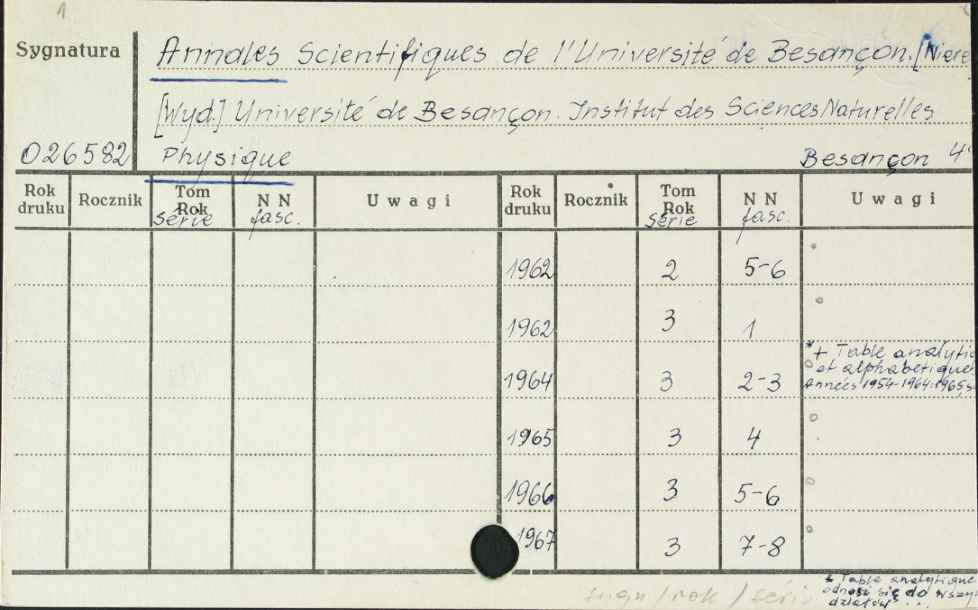 1
Sygnatura Annales Scientifiques de l'Université de Besançon. [Niere
[Wyd.] Université de Besançon. Institut des Sciences Naturelles
026582 Physique Besançon 4°
Rok druku Rocznik Tom Rok série N N fasc. Uwagi Rok druku Rocznik Tom Rok Série N N fasc. Uwagi
1962 2 5-6
1962 3 1
1964 3 2-3 *+ Table analytiq et alphabétique années 1954-1964.1965,s
1965 3 4
1966 3 5-6
1967 3 7-8
* Table analytique
odnosi się do wszy
działów ...
/ rok / séri